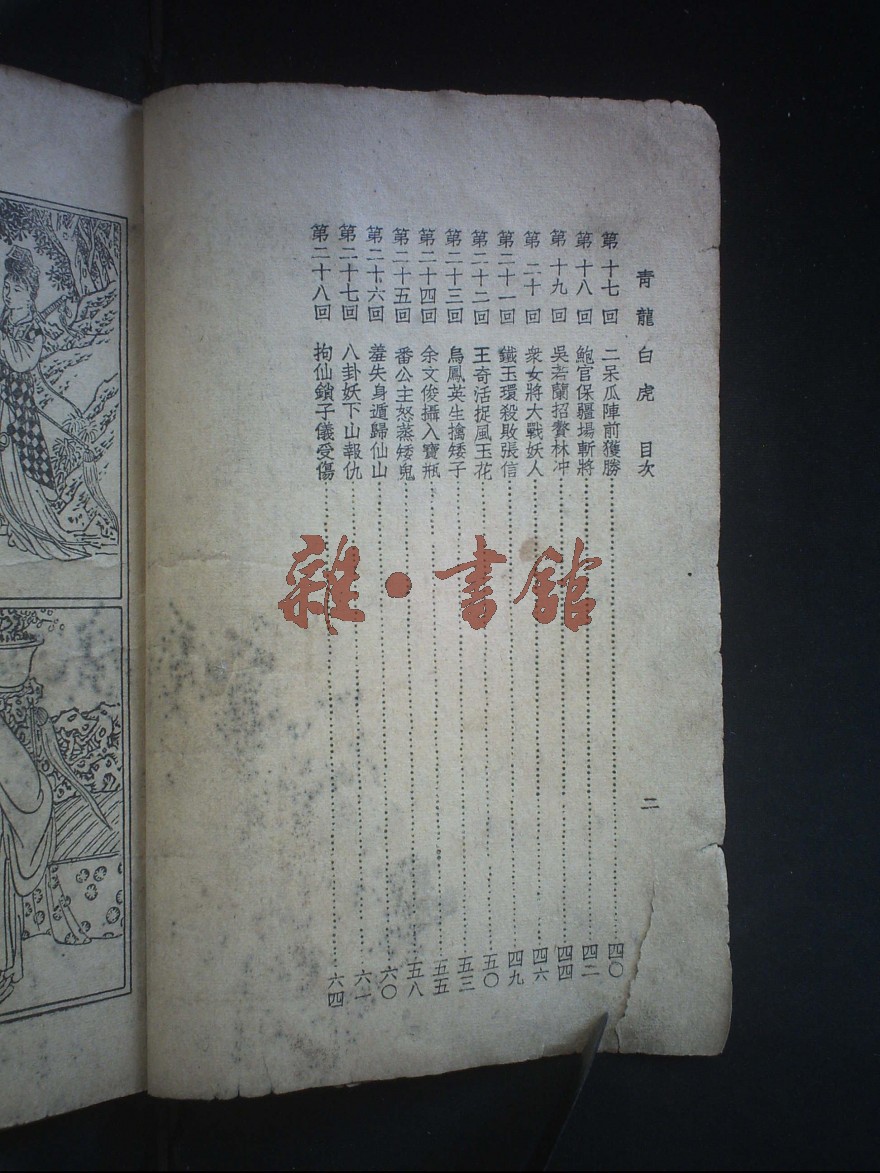 青龍白虎 目次
二
第十七回 二呆瓜陣前獲勝 四〇
第十八回 鮑官保疆場斬將 四二
第十九回 吳若蘭招贅林冲 四四
第二十回 衆女將大戰妖人 四六
第二十一回 鐵玉環殺敗張信 四九
第二十二回 王奇活捉風玉花 五〇
第二十三回 鳥鳳英生擒矮子 五三
第二十四回 余文俊攝入寶瓶 五五
第二十五回 番公主怒蒸矮鬼 五八
第二十六回 羞失身遁歸仙山 六〇
第二十七回 八卦妖下山報仇 六一
第二十八回 拘仙鎖子儀受傷 六四
雜·書館